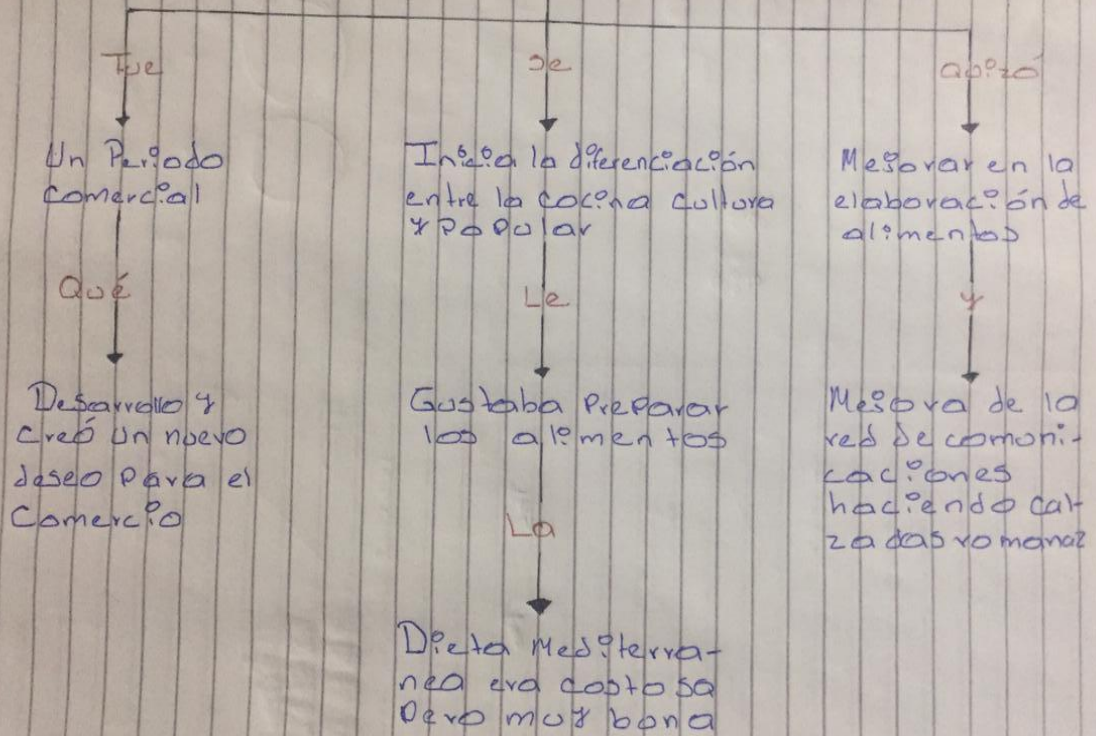 Fue
Un Periodo
comercial
Qué
Desarrollo y
creó un nuevo
deseo para el
Comercio
Se
Inicia la diferenciación
entre la cocina cultura
y popular
Le
Gustaba Preparar
los alimentos
La
Dieta Mediterra-
nea era costosa
pero muy bona
Mejorar en la
elaboración de
alimentos
y
Mejora de la
red de comoni-
caciones
haciendo cal-
zadas romanaz